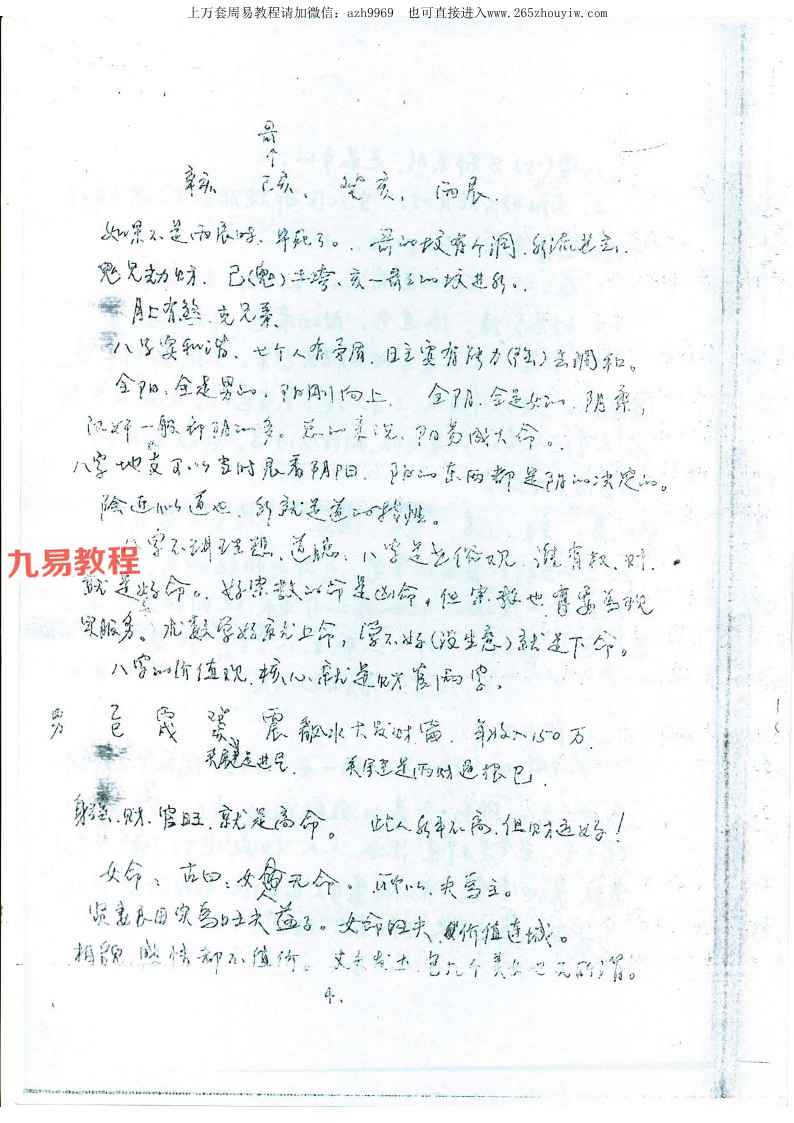 上万套周易教程请加微信：azh9969 也可直接进入www.265zhouyiw.com
哥
个
辛亥 己亥 癸亥 丙辰
如果不是丙辰时，早死了。哥的坟有个洞，水流进去，
鬼兄劫财方，己(鬼) 亥一哥的坟进水。
月上有煞，克兄弟。
八字要和谐，七个人有矛盾，日主要有能力(强)去调和。
全阳，全是男的，阳刚向上，全阴，全是女的，阴柔，
奸一般都阴的多。总的来说，阳易成大命。
八字地支可以当时辰看阴阳，阳的东西都是阴的决定的。
险近似道也，水就是道的特性。
九易教程
八字不讲理想、道德，八字是世俗观，谁有权、财，
就是好命。好宗教的命是凶命，但宗教也需要为现
实服务。求数学好就上命，学不好(没生意)就是下命。
八字的价值观，核心就是财官两字。
男 乙巳 丙戌 癸亥 丙辰 水大发财富，年收入150万，
身强、财、官旺，就是高命。此人水平不高，但财运好！
女命：古曰：女贵无命，所以，夫为主。
贤妻良母 为旺夫益子。女命旺夫，价值连城。
相貌、感情都不值价。丈夫发达，包几个美女也无所谓。
4.